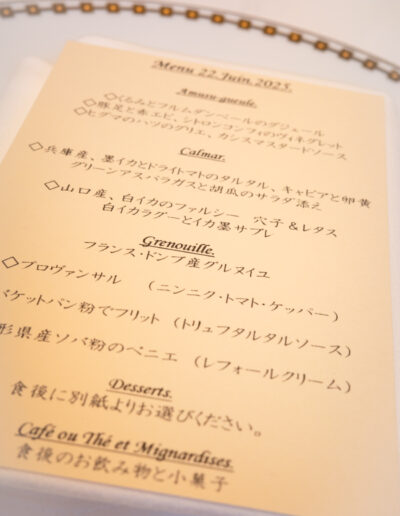 Menu 22 Juin. 2025.
Amuse-gueule.
◇くるみとフルムダンベールのダジュール
◇豚足と赤エビ、シトロンコンフィのヴィネグレット
◇ヒグマのハツのグリエ、カシスマスタードソース
Calmar.
◇兵庫産、墨イカとドライトマトのタルタル、キャビアと卵黄
グリーンアスパラガスと胡瓜のサラダ添え
◇山口産、白イカのファルシー 穴子&レタス
白イカラグーとイカ墨サブレ
Grenouille.
フランス・ドンブ産グルヌイユ
◇プロヴァンサル (ニンニク・トマト・ケッパー)
バケットパン粉でフリット (トリュフタルタルソース)
形県産ソバ粉のベニエ (レフォールクリーム)
Desserts.
食後に別紙よりお選びください。
Café ou Thé et Mignardises.
食後のお飲み物と小菓子